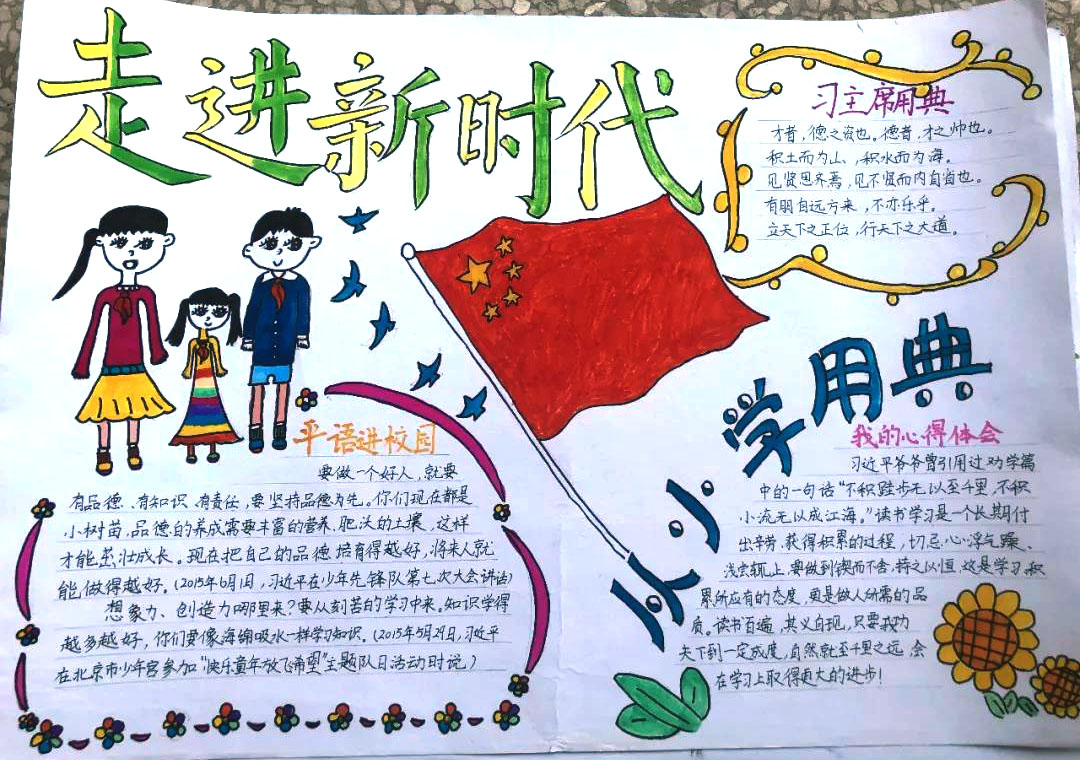 走进新时代
习主席用典
才者,德之资也。德者,才之帅也。
积土而为山,积水而为海。
见贤思齐焉,见不贤而内自省也。
有朋自远方来,不亦乐乎。
立天下之正位,行天下之大道。
平语进校园
要做一个好人,就要
有品德、有知识、有责任,要坚持品德为先。你们现在都是
小树苗,品德的养成需要丰富的营养、肥沃的土壤,这样
才能茁壮成长。现在把自己的品德培育得越好,将来人就
能做得越好。(2015年6月1日,习近平在少年先锋队第七次大会讲话)
想象力、创造力哪里来?要从刻苦的学习中来。知识学得
越多越好,你们要像海绵吸水一样学习知识。(2015年5月29日,习近平
在北京市少年宫参加“快乐童年放飞希望”主题队日活动时说。)
从小学用典
我的心得体会
习近平爷爷曾引用过劝学篇
中的一句话“不积跬步无以至千里,不积
小流无以成江海。”读书学习是一个长期付
出辛劳、获得积累的过程,切忌心浮气躁、
浅尝辄止,要做到锲而不舍,持之以恒,这是学习、积
累所应有的态度,更是做人所需的品
质。读书百遍,其义自现,只要我功
夫下到一定成度,自然就至千里之远,会
在学习上取得更大的进步!